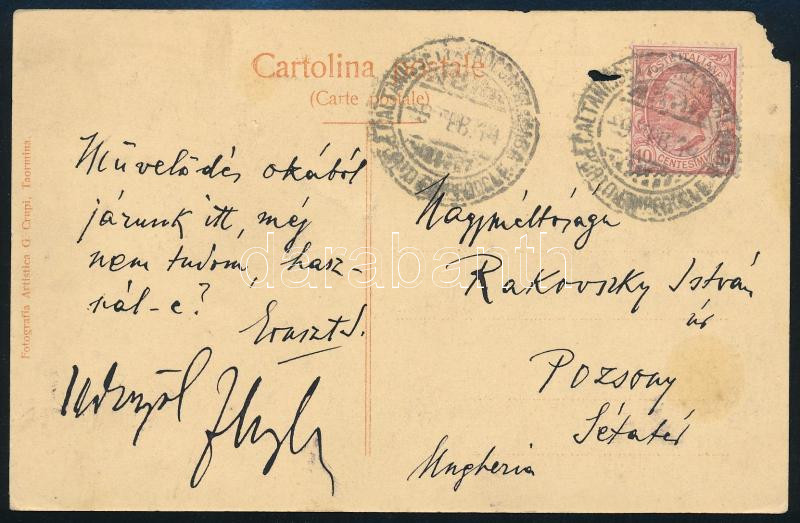 Cartolina postale
(Carte postale)
POSTE ITALIANE
10 CENTESIMI
Művelődés okából
járunk itt, még
nem tudom, hasz-
nál-e?
Ernszt S.
Nagyméltóságu
Rakovszky István
úr
Pozsony
Sétatér
Ungheria
Fotografia Artistica G. Crupi, Taormina.
darabanth